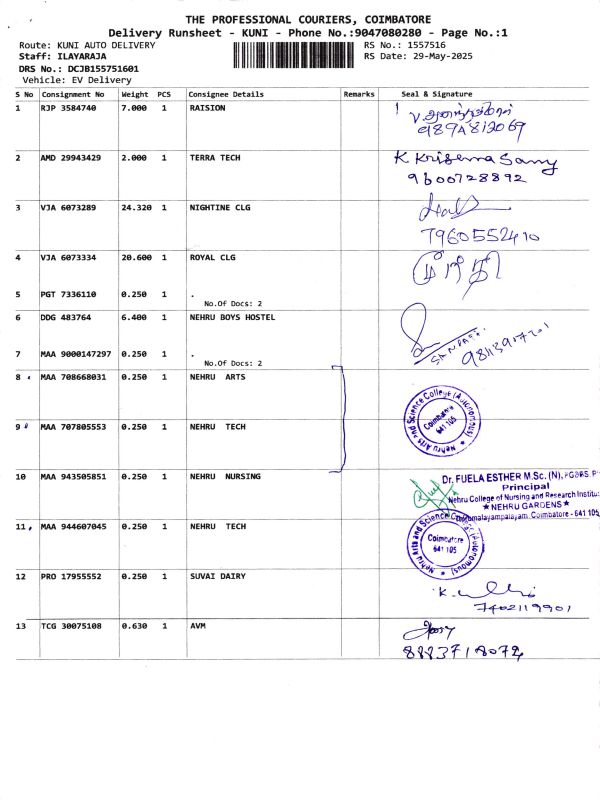 THE PROFESSIONAL COURIERS, COIMBATORE
Delivery Runsheet - KUNI - Phone No.:9047080280 - Page No.:1
Route: KUNI AUTO DELIVERY RS No.: 1557516
Staff: ILAYARAJA RS Date: 29-May-2025
DRS No.: DCJB155751601
Vehicle: EV Delivery
S No Consignment No Weight PCS Consignee Details Remarks Seal & Signature
1 RJP 3584740 7.000 1 RAISION
2 AMD 29943429 2.000 1 TERRA TECH K Krishna Samy
9600728892
3 VJA 6073289 24.320 1 NIGHTINE CLG
7960552410
4 VJA 6073334 20.600 1 ROYAL CLG
5 PGT 7336110 0.250 1 .
No.Of Docs: 2
6 DDG 483764 6.400 1 NEHRU BOYS HOSTEL
7 MAA 9000147297 0.250 1 .
No.Of Docs: 2
8 MAA 708668031 0.250 1 NEHRU ARTS
Nehru Arts and Science College (Autonomous)
Coimbatore
641 105
9 MAA 707805553 0.250 1 NEHRU TECH
10 MAA 943505851 0.250 1 NEHRU NURSING
Dr. FUELA ESTHER M.Sc. (N),
Principal
Nehru College of Nursing and Research Institu
★ NEHRU GARDENS ★
Coimbatore - 641 105
11 MAA 944607045 0.250 1 NEHRU TECH
Nehru Arts and Science (Autonomous)
Coimbatore
641 105
12 PRO 17955552 0.250 1 SUVAI DAIRY
7402119901
13 TCG 30075108 0.630 1 AVM